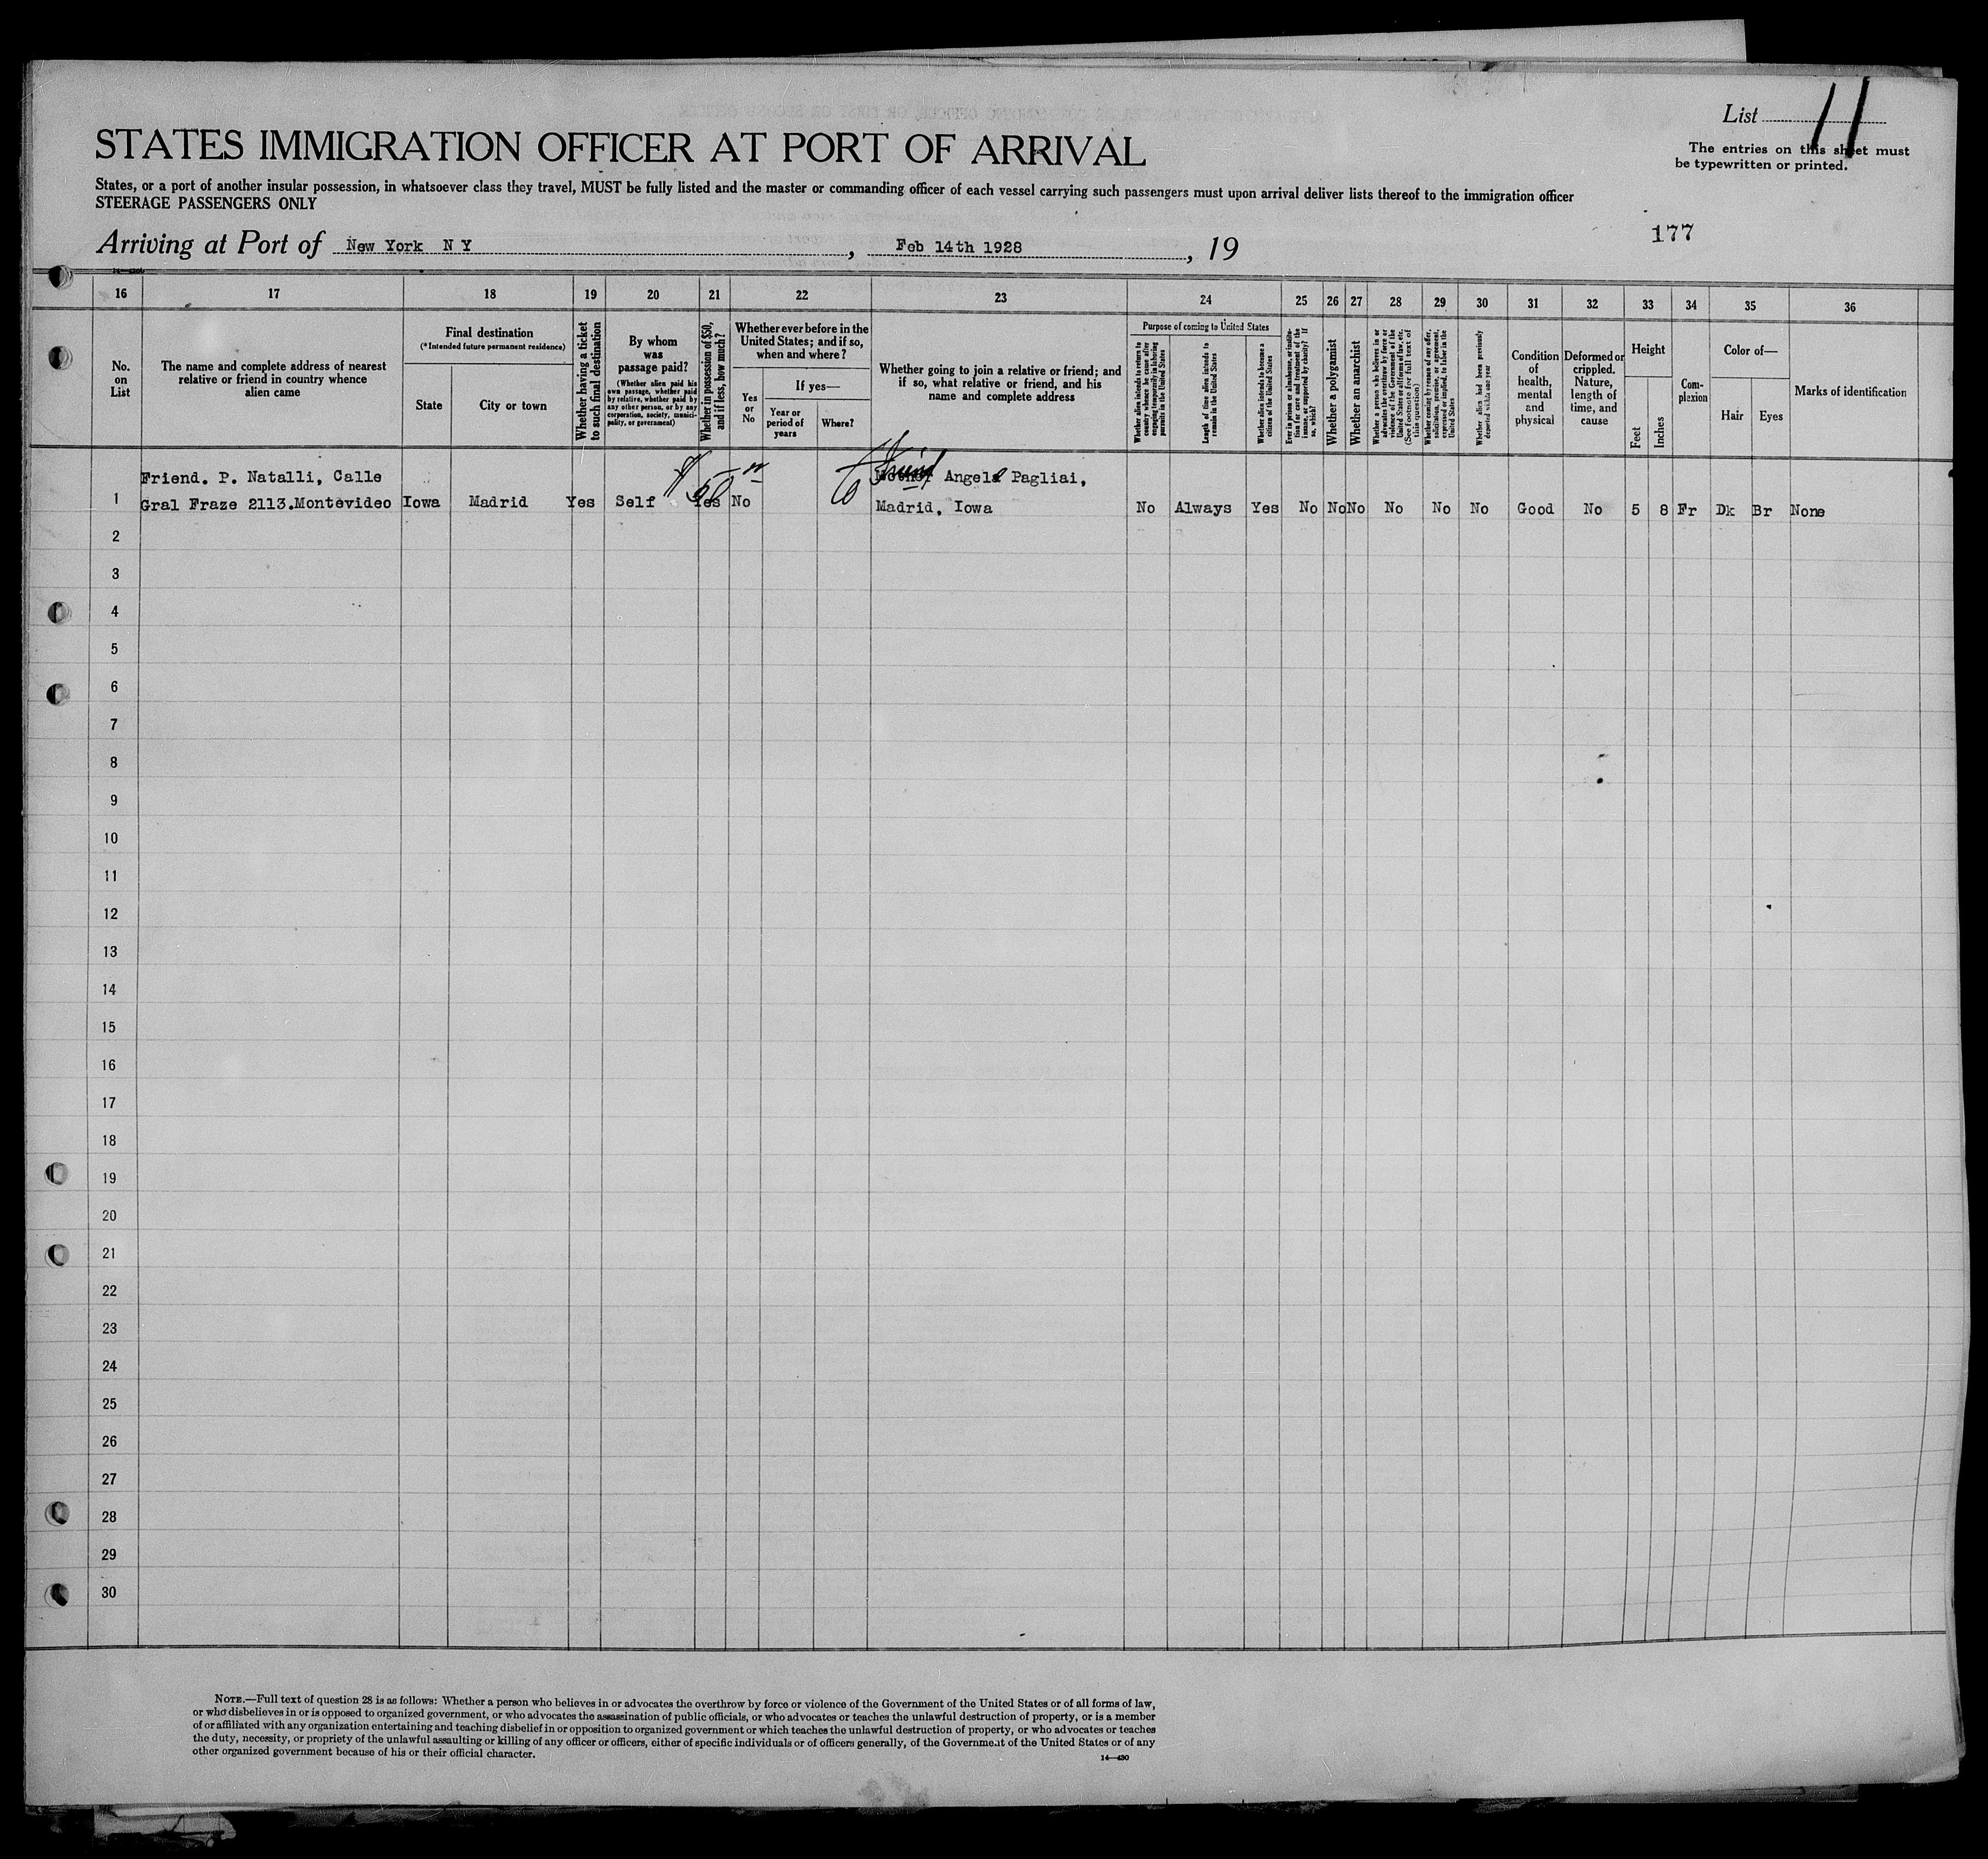 List 11
The entries on this sheet must
be typewritten or printed.
STATES IMMIGRATION OFFICER AT PORT OF ARRIVAL
States, or a port of another insular possession, in whatsoever class they travel, MUST be fully listed and the master or commanding officer of each vessel carrying such passengers must upon arrival deliver lists thereof to the immigration officer
STEERAGE PASSENGERS ONLY
177
Arriving at Port of New York N Y, Feb 14th 1928, 19
16 17 18 19 20 21 22 23 24 25 26 27 28 29 30 31 32 33 34 35 36
No.
on
List
The name and complete address of nearest
relative or friend in country whence
alien came
Final destination
(*Intended future permanent residence)
State
City or town
Whether having a ticket
to such final destination
By whom
was
passage paid?
(Whether alien paid his
own passage, whether paid
by relative, whether paid by
any other person, or by any
corporation, society, munici-
pality, or government)
Whether in possession of $50,
and if less, how much?
Whether ever before in the
United States; and if so,
when and where?
Yes
or
No
If yes—
Year or
period of
years
Where?
Whether going to join a relative or friend; and
if so, what relative or friend, and his
name and complete address
Purpose of coming to United States
Whether alien intends to return to
country whence he came after
engaging temporarily in laboring
pursuits in the United States
Length of time alien intends to
remain in the United States
Whether alien intends to become a
citizen of the United States
Ever in prison or almshouse, or institu-
tion for care and treatment of the
insane, or supported by charity? If
so, which?
Whether a polygamist
Whether an anarchist
Whether a person who believes in or
advocates the overthrow by force or
violence of the Government of the
United States or all forms of law, etc.
(See footnote for full text of
this question)
Whether coming by reason of any offer,
solicitation, promise, or agreement,
expressed or implied, to labor in the
United States
Whether alien had been previously
deported within one year
Condition
of
health,
mental
and
physical
Deformed or
crippled.
Nature,
length of
time, and
cause
Height
Feet
Inches
Com-
plexion
Color of—
Hair
Eyes
Marks of identification
Friend. P. Natalli, Calle
$50 Friend Angela Pagliai,
1 Gral Fraze 2113.Montevideo Iowa Madrid Yes Self Yes No Madrid, Iowa No Always Yes No No No No No No Good No 5 8 Fr Dk Br None
2
3
4
5
6
7
8
9
10
11
12
13
14
15
16
17
18
19
20
21
22
23
24
25
26
27
28
29
30
NOTE.—Full text of question 28 is as follows: Whether a person who believes in or advocates the overthrow by force or violence of the Government of the United States or of all forms of law,
or who disbelieves in or is opposed to organized government, or who advocates the assassination of public officials, or who advocates or teaches the unlawful destruction of property, or is a member
of or affiliated with any organization entertaining and teaching disbelief in or opposition to organized government or which teaches the unlawful destruction of property, or who advocates or teaches
the duty, necessity, or propriety of the unlawful assaulting or killing of any officer or officers, either of specific individuals or of officers generally, of the Government of the United States or of any
other organized government because of his or their official character.
14—430